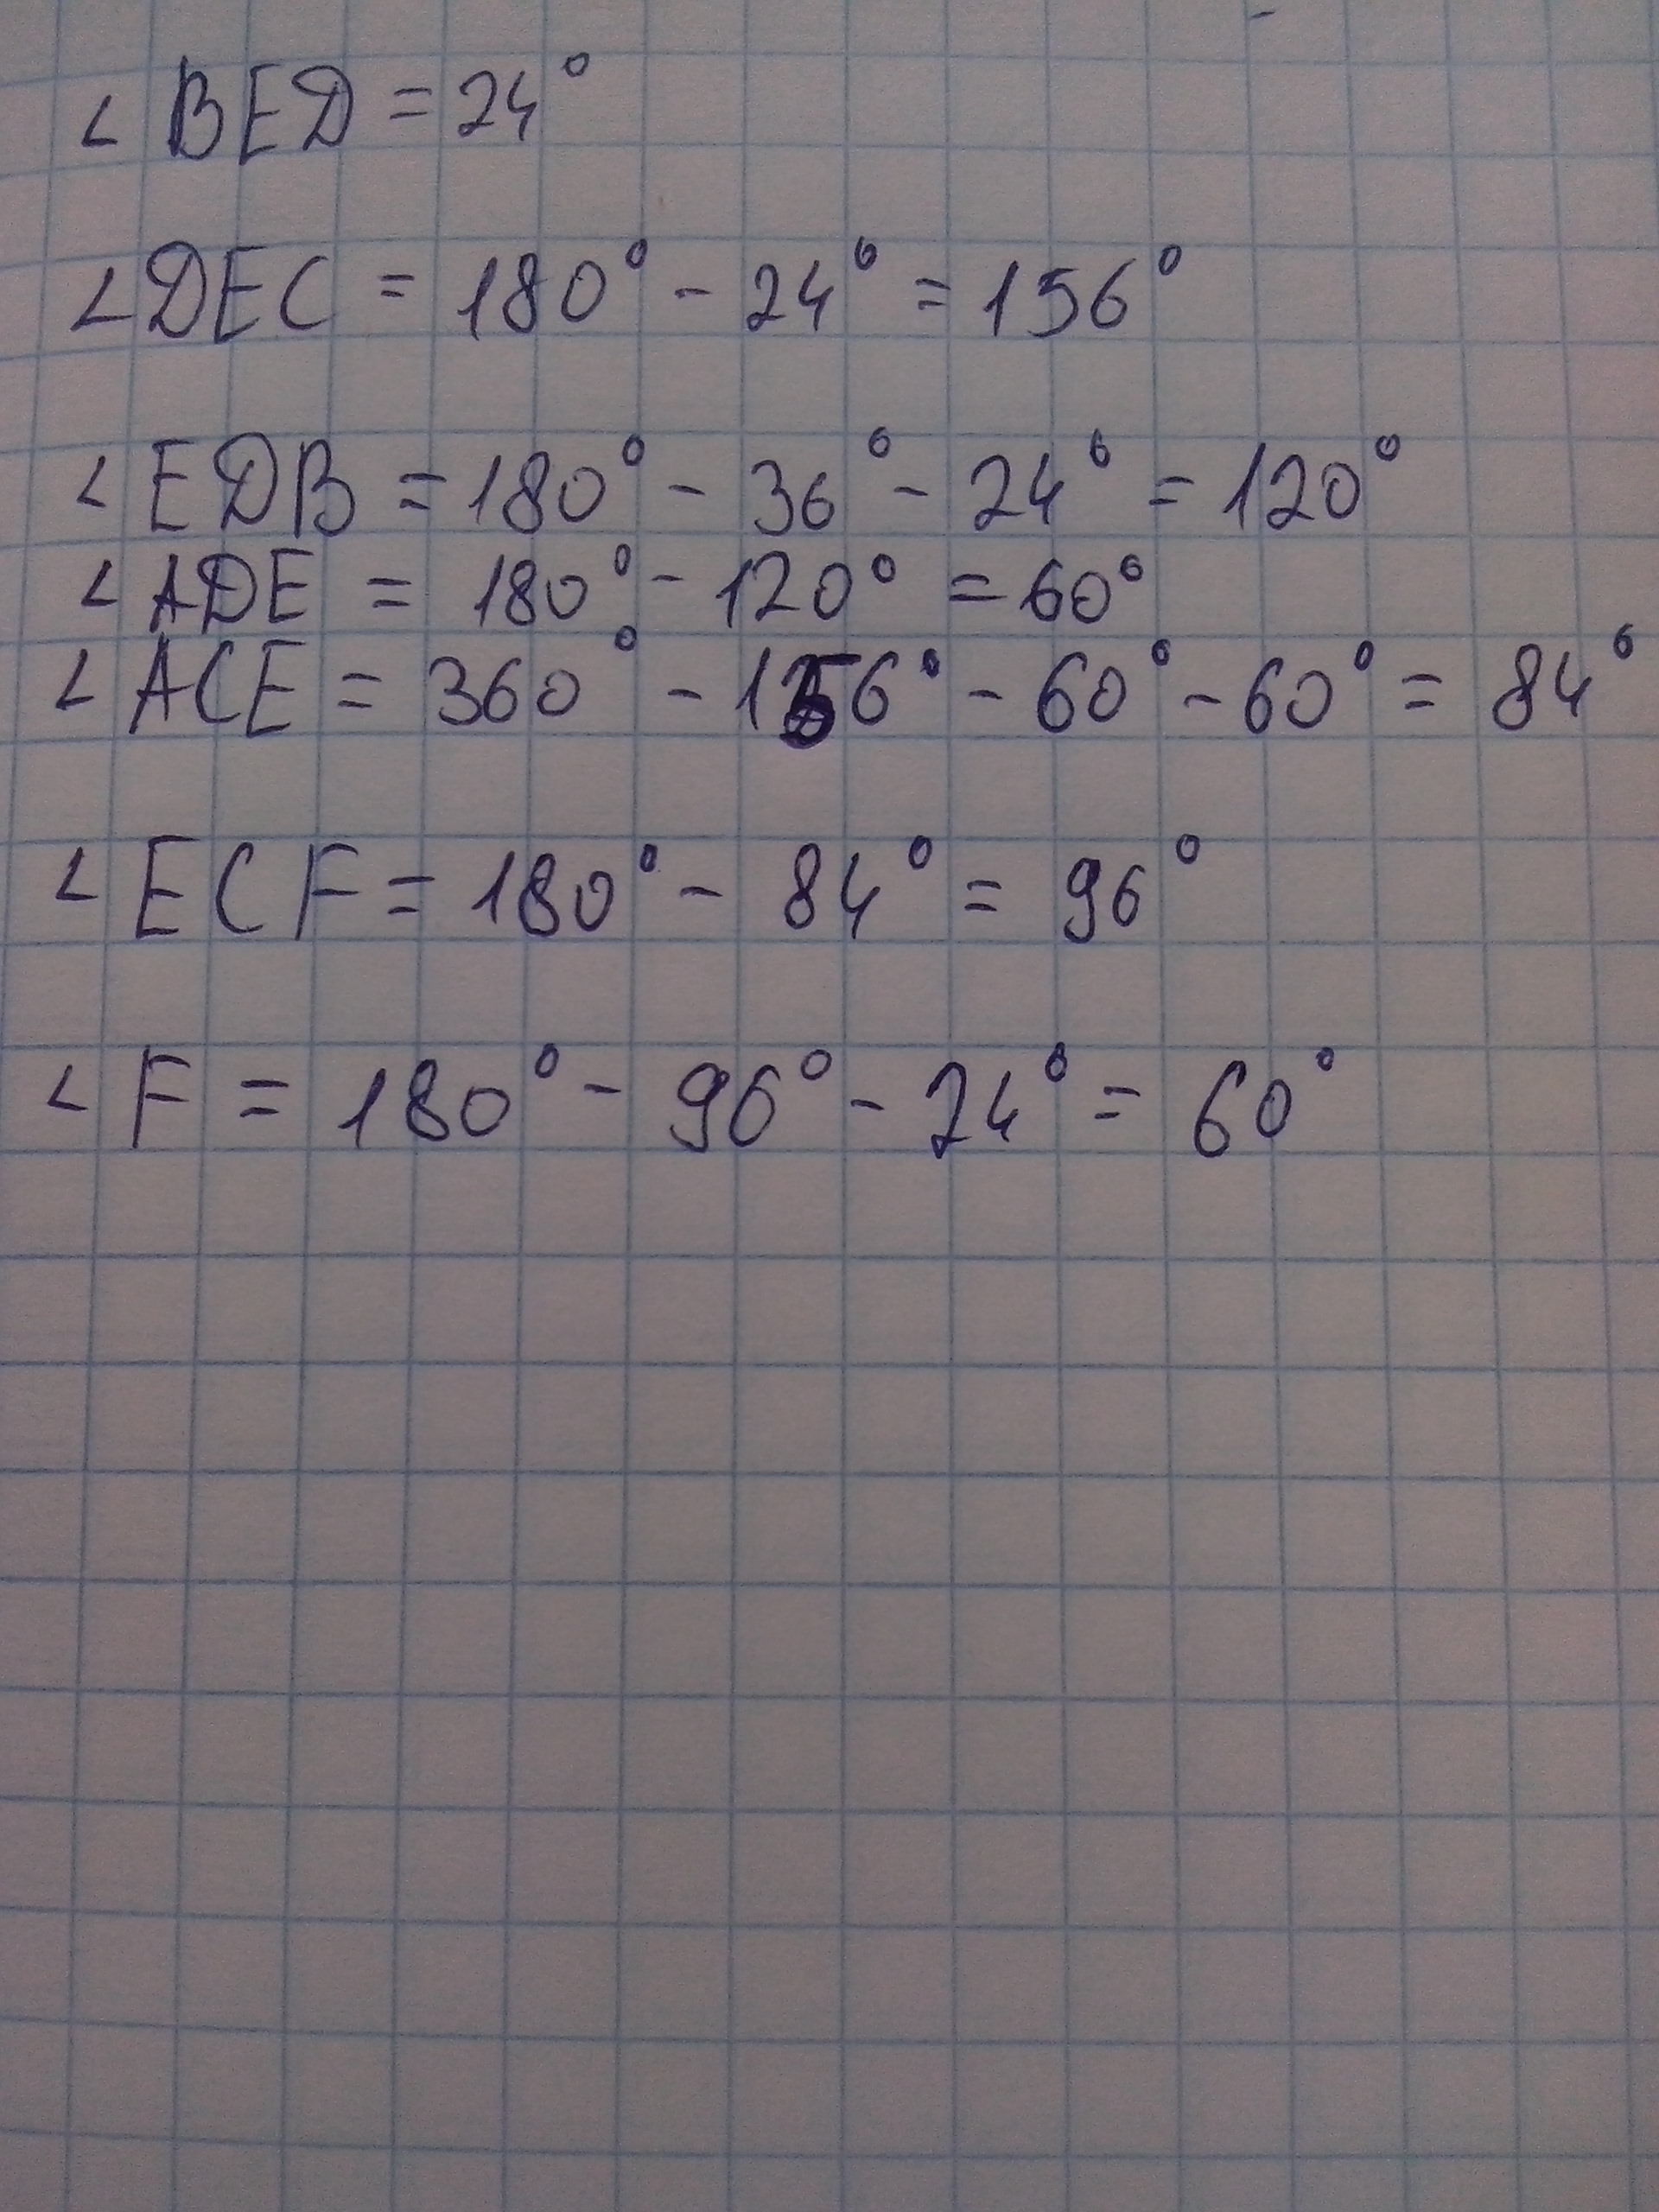 ∠BED = 24°
∠DEC = 180° - 24° = 156°
∠EDB = 180° - 36° - 24° = 120°
∠ADE = 180° - 120° = 60°
∠ACE = 360° - 156° - 60° - 60° = 84°
∠ECF = 180° - 84° = 96°
∠F = 180° - 96° - 24° = 60°